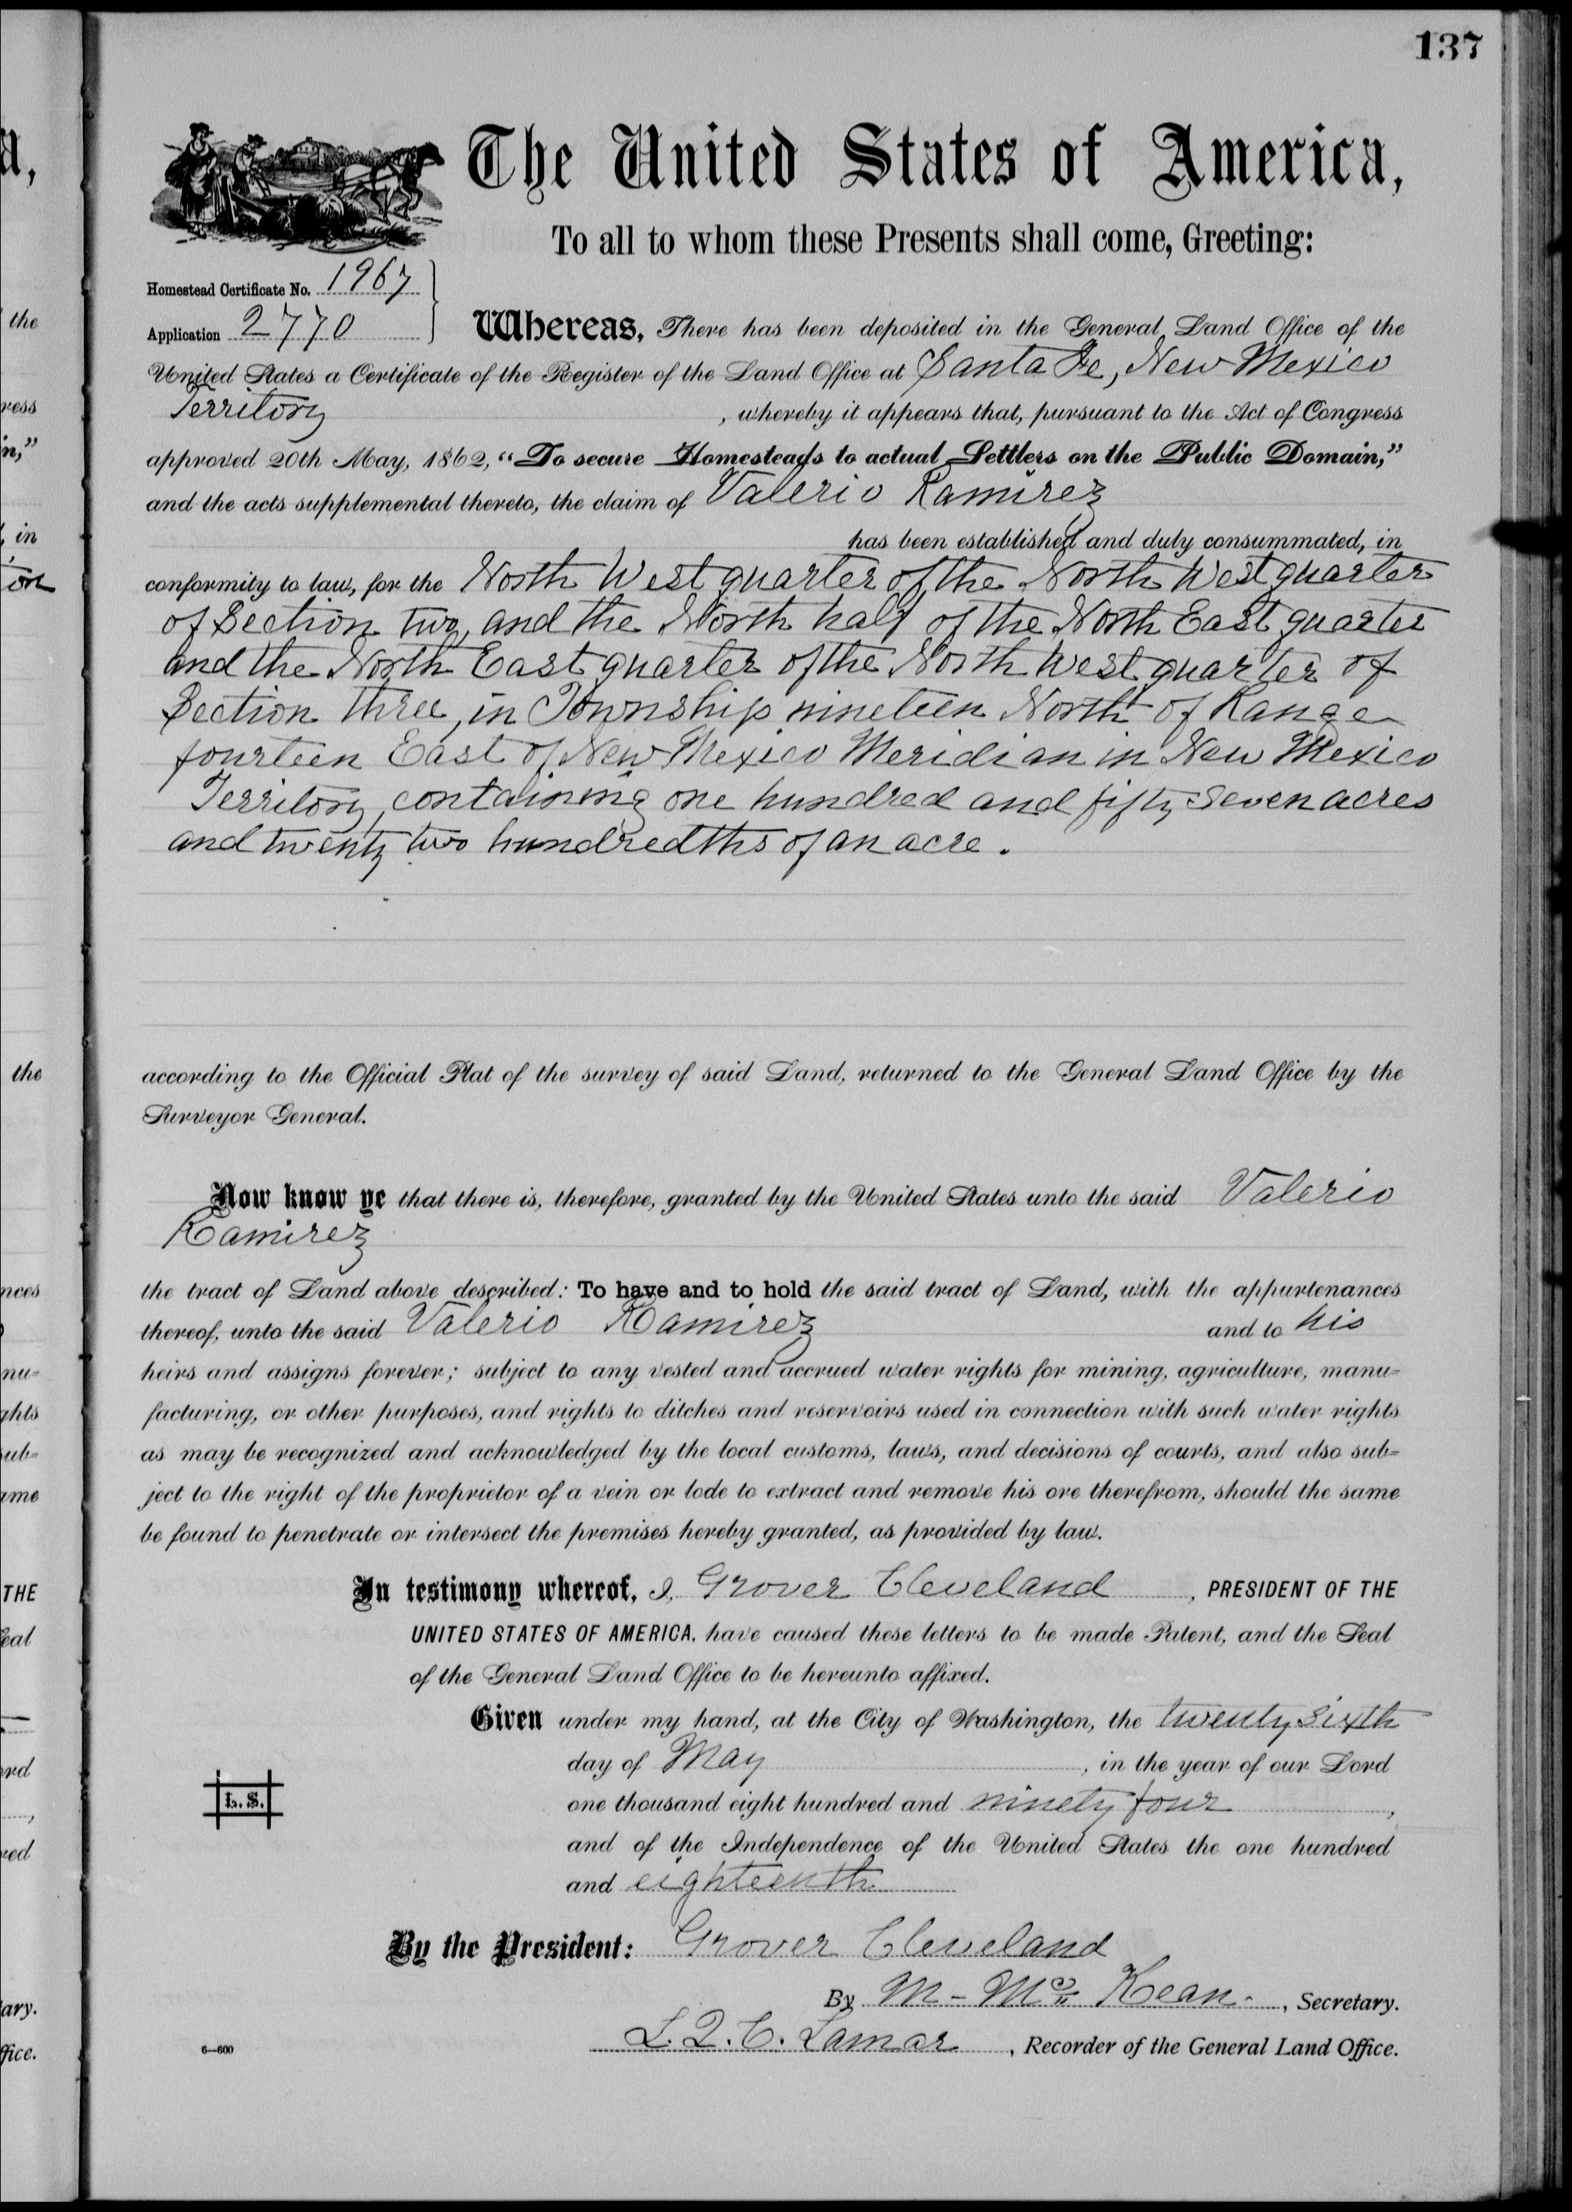 137
The United States of America,
To all to whom these Presents shall come, Greeting:
Homestead Certificate No. 1967
Application 2770
Whereas, There has been deposited in the General Land Office of the
United States a Certificate of the Register of the Land Office at Santa Fe, New Mexico
Territory, whereby it appears that, pursuant to the Act of Congress
approved 20th May, 1862, “To secure Homesteads to actual Settlers on the Public Domain,”
and the acts supplemental thereto, the claim of Valerio Ramirez
has been established and duly consummated, in
conformity to law, for the North West quarter of the North West quarter
of Section two, and the North half of the North East quarter
and the North East quarter of the North West quarter of
Section three, in Township nineteen North of Range
fourteen East of New Mexico Meridian in New Mexico
Territory, containing one hundred and fifty seven acres
and twenty two hundredths of an acre.
according to the Official Plat of the survey of said Land, returned to the General Land Office by the
Surveyor General.
Now know ye that there is, therefore, granted by the United States unto the said Valerio
Ramirez
the tract of Land above described: To have and to hold the said tract of Land, with the appurtenances
thereof, unto the said Valerio Ramirez and to his
heirs and assigns forever; subject to any vested and accrued water rights for mining, agriculture, manu-
facturing, or other purposes, and rights to ditches and reservoirs used in connection with such water rights
as may be recognized and acknowledged by the local customs, laws, and decisions of courts, and also sub-
ject to the right of the proprietor of a vein or lode to extract and remove his ore therefrom, should the same
be found to penetrate or intersect the premises hereby granted, as provided by law.
In testimony whereof, I, Grover Cleveland, PRESIDENT OF THE
UNITED STATES OF AMERICA, have caused these letters to be made Patent, and the Seal
of the General Land Office to be hereunto affixed.
Given under my hand, at the City of Washington, the twenty sixth
day of May, in the year of our Lord
one thousand eight hundred and ninety four,
and of the Independence of the United States the one hundred
and eighteenth
L. S.
By the President: Grover Cleveland
By M. McKean, Secretary.
L. Q. C. Lamar, Recorder of the General Land Office.
6—600